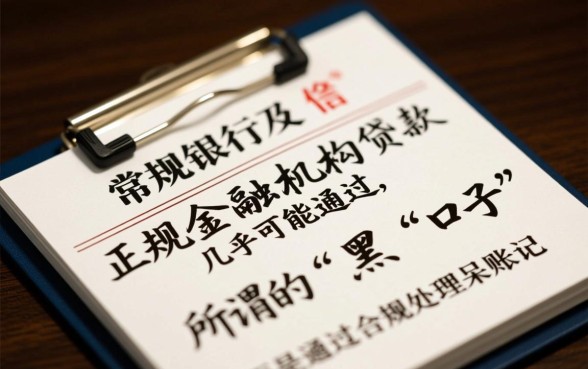 常规银行及
正规金融机构贷款
几乎可能通过,
所谓的“黑“口子”
是通过合规处理呆账记